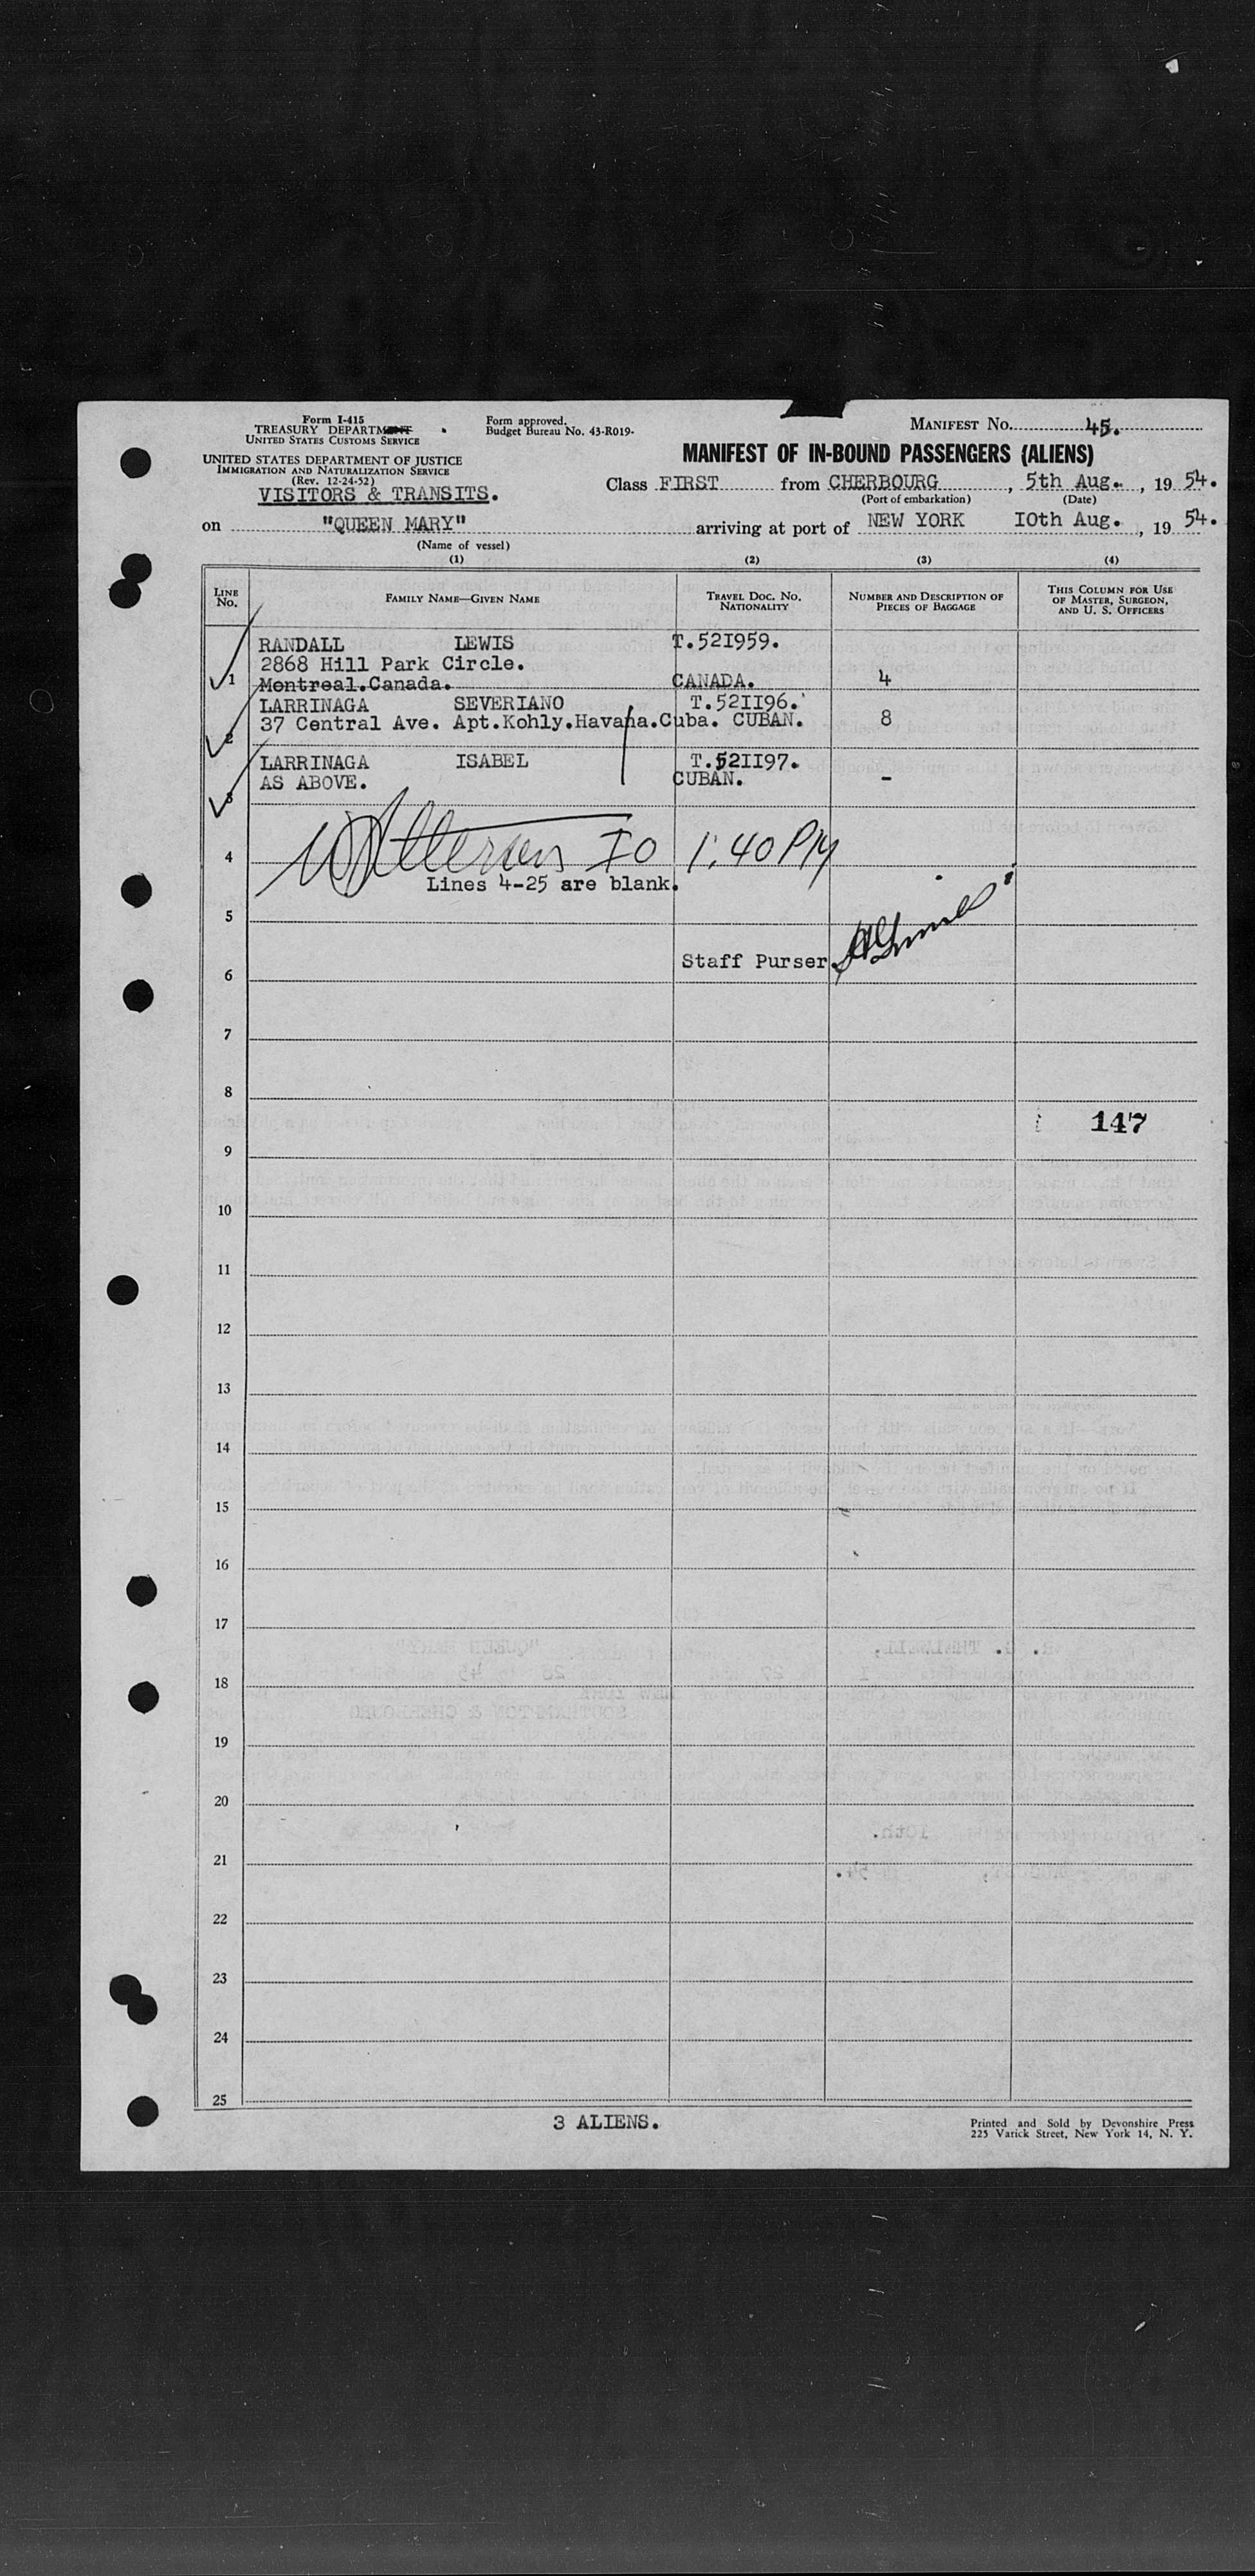 Form I-415
TREASURY DEPARTMENT
UNITED STATES CUSTOMS SERVICE
Form approved.
Budget Bureau No. 43-R019.
MANIFEST No. 45.
UNITED STATES DEPARTMENT OF JUSTICE
IMMIGRATION AND NATURALIZATION SERVICE
(Rev. 12-24-52)
VISITORS & TRANSITS.
MANIFEST OF IN-BOUND PASSENGERS (ALIENS)
Class FIRST from CHERBOURG, 5th Aug., 19 54.
(Port of embarkation) (Date)
on "QUEEN MARY" arriving at port of NEW YORK IOth Aug., 19 54.
(Name of vessel)
(1) (2) (3) (4)
LINE No. FAMILY NAME—GIVEN NAME TRAVEL DOC. NO. NATIONALITY NUMBER AND DESCRIPTION OF PIECES OF BAGGAGE THIS COLUMN FOR USE OF MASTER, SURGEON, AND U. S. OFFICERS
RANDALL LEWIS T.52I959.
2868 Hill Park Circle.
1 Montreal.Canada. CANADA. 4
LARRINAGA SEVERIANO T.52II96.
37 Central Ave. Apt.Kohly.Havana.Cuba. CUBAN. 8
2
LARRINAGA ISABEL T.52II97.
AS ABOVE. CUBAN. -
3
IO 1:40 PM
4
Lines 4-25 are blank.
5
Staff Purser
6
7
8
147
9
10
11
12
13
14
15
16
17
18
19
20
21
22
23
24
25
3 ALIENS.
Printed and Sold by Devonshire Press
225 Varick Street, New York 14, N. Y.